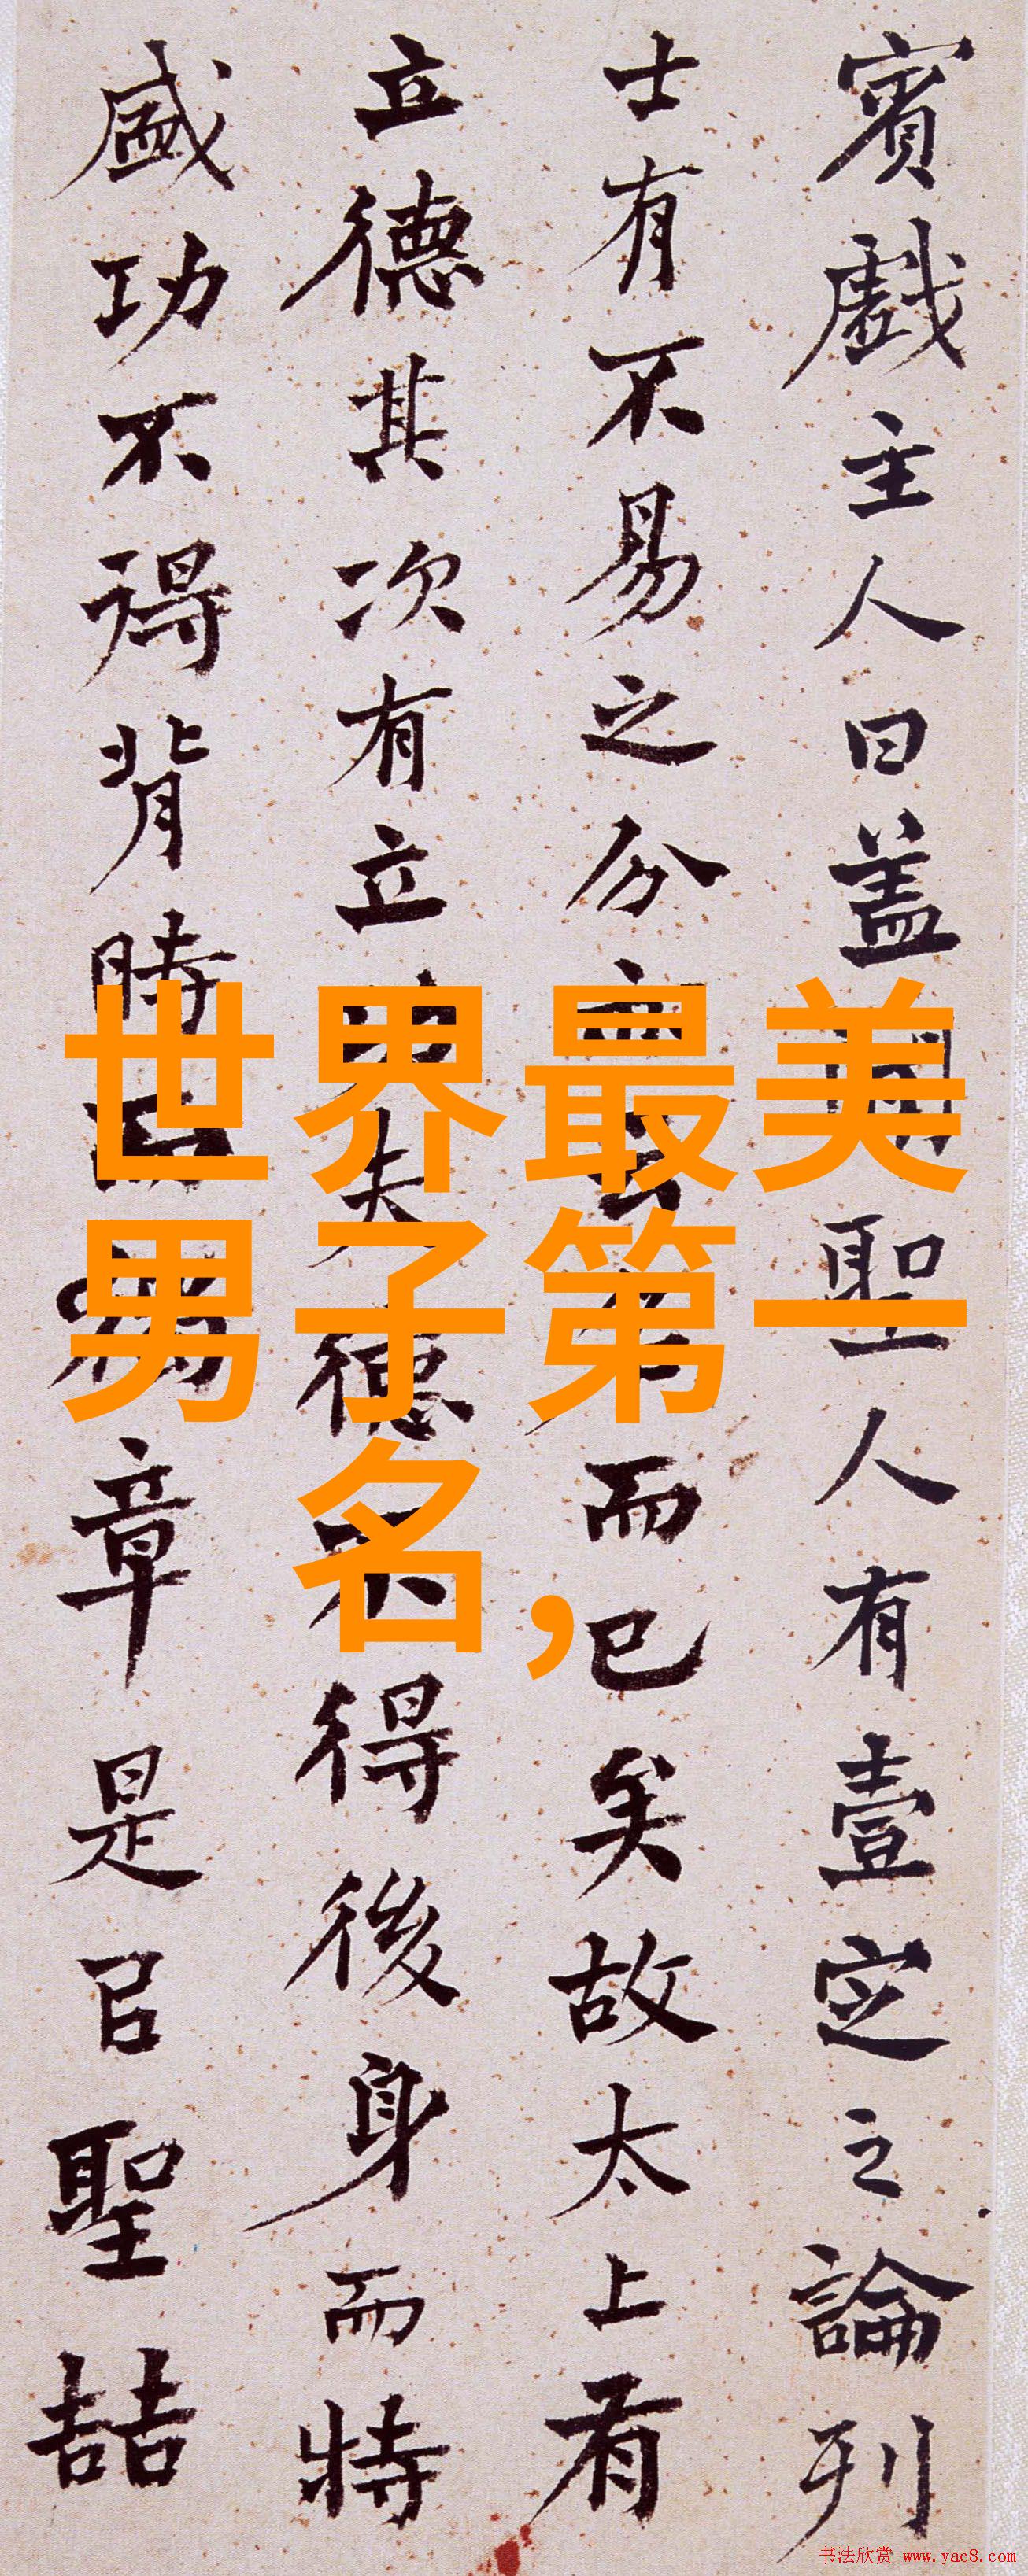 賓戲主人曰盖聞聖人有壹定之論刊
士有不易之分亦云名而已矣故太上有
立德其次有立功夫德不得後身而特
盛功不得背時而獨章是㠯聖喆
世界最美
男子第一
名,
书法欣赏 www.yac8.com